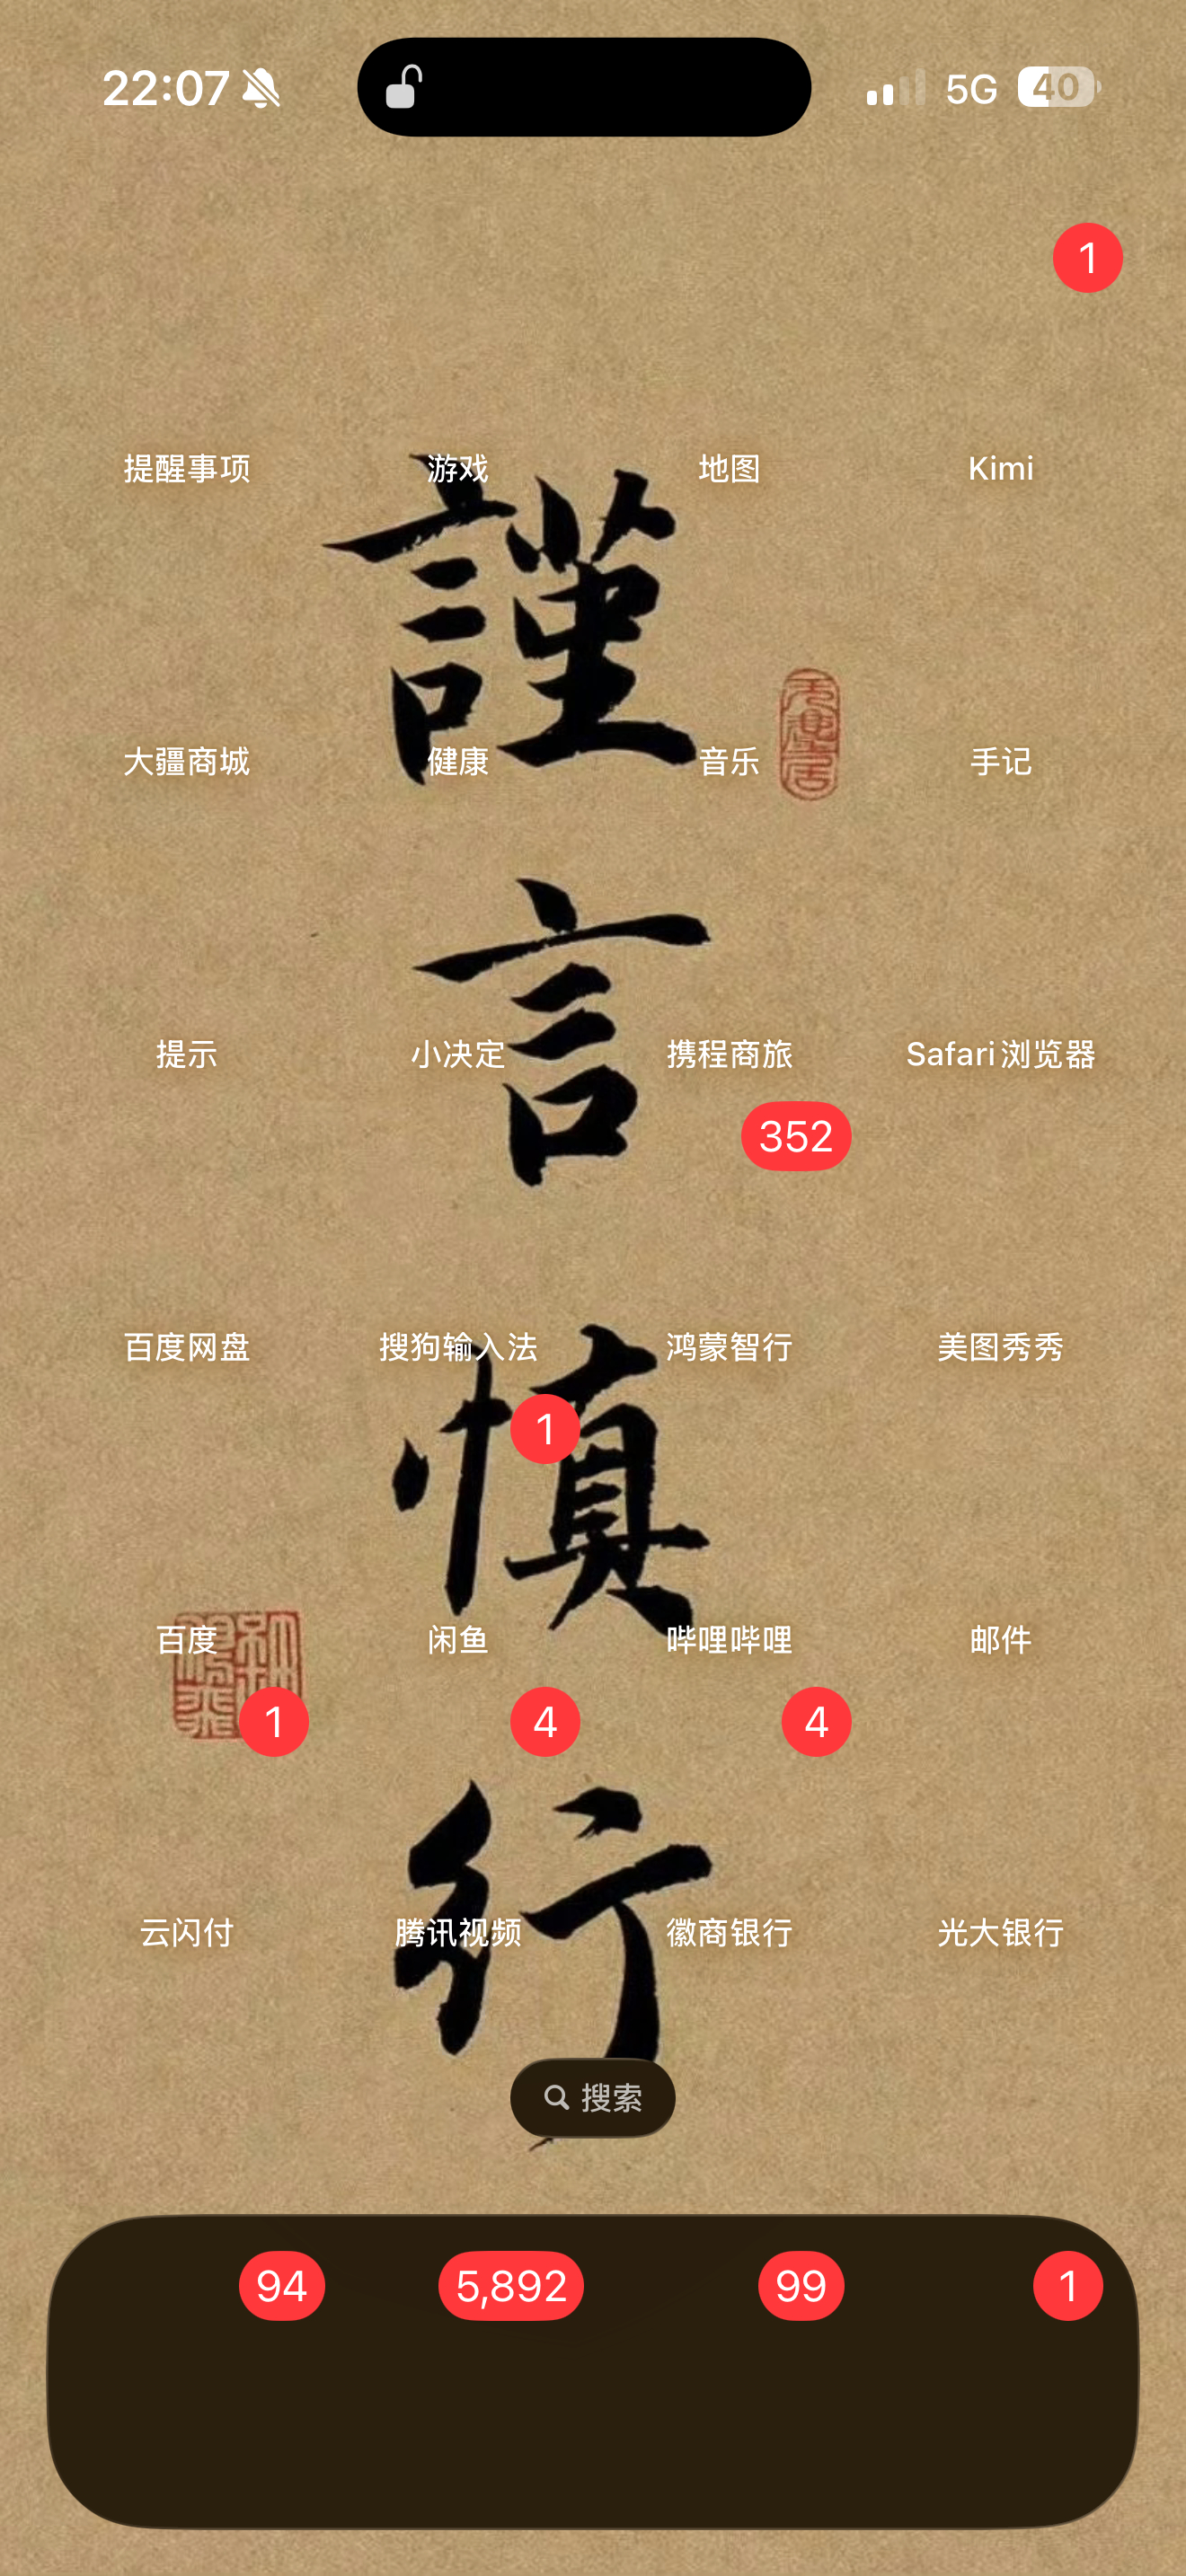 22:07 5G 40
1
提醒事项 游戏 地图 Kimi
謹
大疆商城 健康 音乐 手记
言
提示 小决定 携程商旅 Safari 浏览器
352
百度网盘 搜狗输入法 鸿蒙智行 美图秀秀
1
慎
百度 闲鱼 哔哩哔哩 邮件
1 4 4
行
云闪付 腾讯视频 徽商银行 光大银行
搜索
94 5,892 99 1